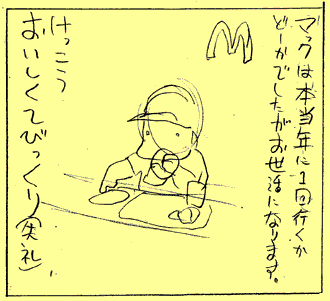 マックは本当年に1回行くか
どーかでしたがお世話になります。
M
けっこう
おいしくてびっくり(失礼)